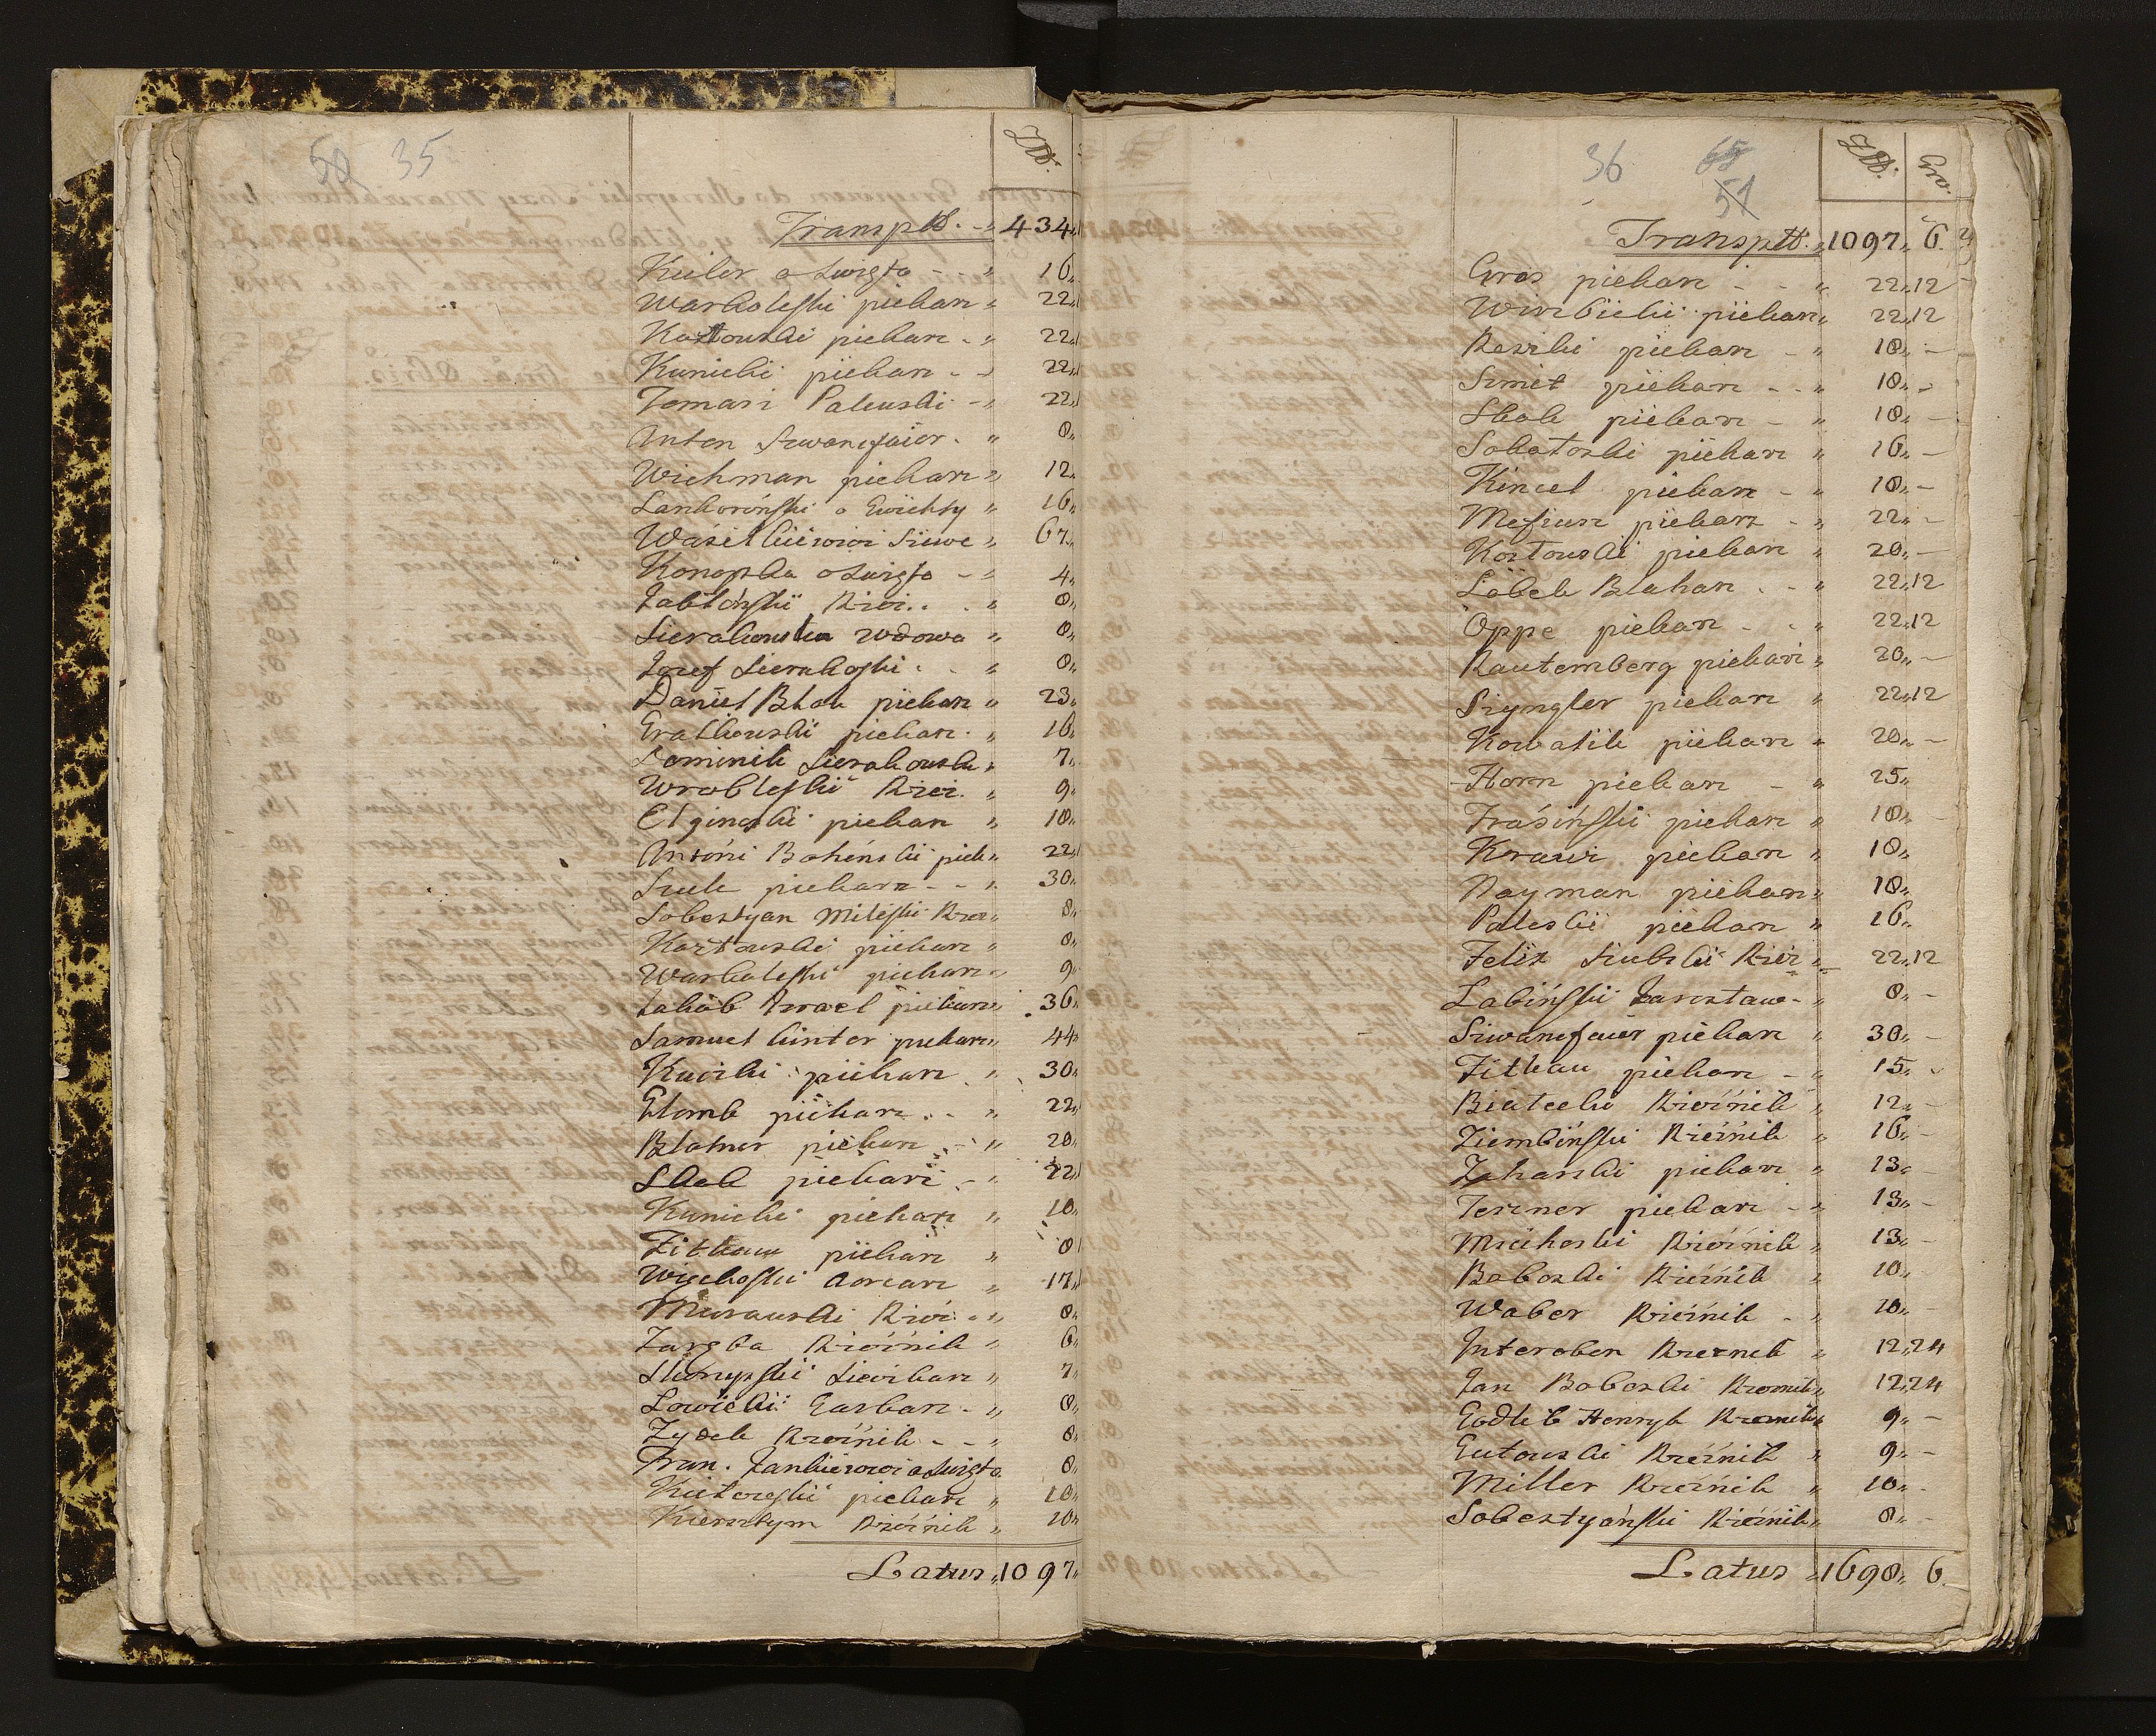 50 35
Złł.
Transptt. " 434 "
Kieler o Swięto - " 16 "
Warkoleski piekarz " 22 "
Koztouski piekarz - " 22 "
Kunicki piekarz - " 22 "
Tomasz Paleuski - " 22 "
Anton Szwancfaier. " 8 "
Wichman piekarz " 12 "
Lankoroński o Gwichty " 16 "
Wasielkiewicz Szewc " 67 "
Konopka o Swięto - " 4 "
Jabłoński Rzez. . " 8 "
Sierakouska wdowa " 8 "
Jozef Sierakoski . " 8 "
Daniel Blok piekarz " 23 "
Gratkouski piekarz . " 16 "
Dominik Sierakouski " 7 "
Wrobleski Rzez. " 9 "
Elginoski piekarz " 18 "
Antoni Bohenski piek " 22 "
Szulc piekarz - - " 30 "
Sobestyan Mileski Rzez " 8 "
Koztouski piekarz " 8 "
Warkoleski piekarz " 9 "
Jakob Israel piekarz " 36 "
Samuel Ginter piekarz " 44 "
Kuczki piekarz " 30 "
Glomb piekarz . - " 22 "
Blatner piekarz - " 20 "
Skok piekarz - " 22 "
Kunicki piekarz " 18 "
Zitkau piekarz " 8
Wychoski Gorcarz " 17 "
Murauski Rzez " " 8 "
Zaręba Rzeźnik " 6 "
Skurzyński Sieczkarz " 7 "
Lowicki Garbarz - " 8 "
Zydek Rzeźnik - - " 8 "
Fran. Jankiewicz o Swięto 8 "
Kieterski piekarz " 18 "
Kiersztyn Rzeźnik " 10 "
Latus " 1097 "
36 65 51
Złł. Gro.
Transptt. " 1097 " 6.
Gros piekarz - - " 22 " 12
Wierbicki piekarz " 22 " 12
Reszki piekarz - " 18 " -
Szmit piekarz - - " 18 " -
Skok piekarz - " 18 " -
Sobotoski piekarz " 16 " -
Kincel piekarz - " 18 " -
Mesiun piekarz - " 22 " -
Koztouski piekarz " 20 " -
Löbek Blaharz . - " 22 " 12
Oppe piekarz - - " 22 " 12
Rautemberg piekarz " 20 " -
Szyngler piekarz " 22 " 12
Kowalik piekarz " 20 " -
Horn piekarz - " 25 "
Trasiński piekarz " 18 " -
Krauz piekarz " 18 "
Nayman piekarz " 18 "
Paleski piekarz " 16 "
Felix Siubski Rzez " 22 " 12
Labiński Jarosław - " 8 " -
Szwancfaier piekarz " 30 " -
Zitkau piekarz - " 15 " -
Białecki Rzeźnik " 12 " -
Ziembiński Rzeźnik " 16 " -
Zaharski piekarz " 13 " -
Tesmer piekarz - " 13 " -
Miechoski Rzeźnik " 13 " -
Baboski Rzeźnik " 10 "
Waber Rzeźnik - " 10 "
Interoben Rzeznik " 12 " 24
Jan Baboski Rzeznik " 12 " 24
Godlib Henryk Rzeznik " 9 " -
Gutouski Rzeźnik " 9 " -
Miller Rzeźnik " 10 " -
Sobestyański Rzeźnik " 8 " -
Latus " 1690 " 6